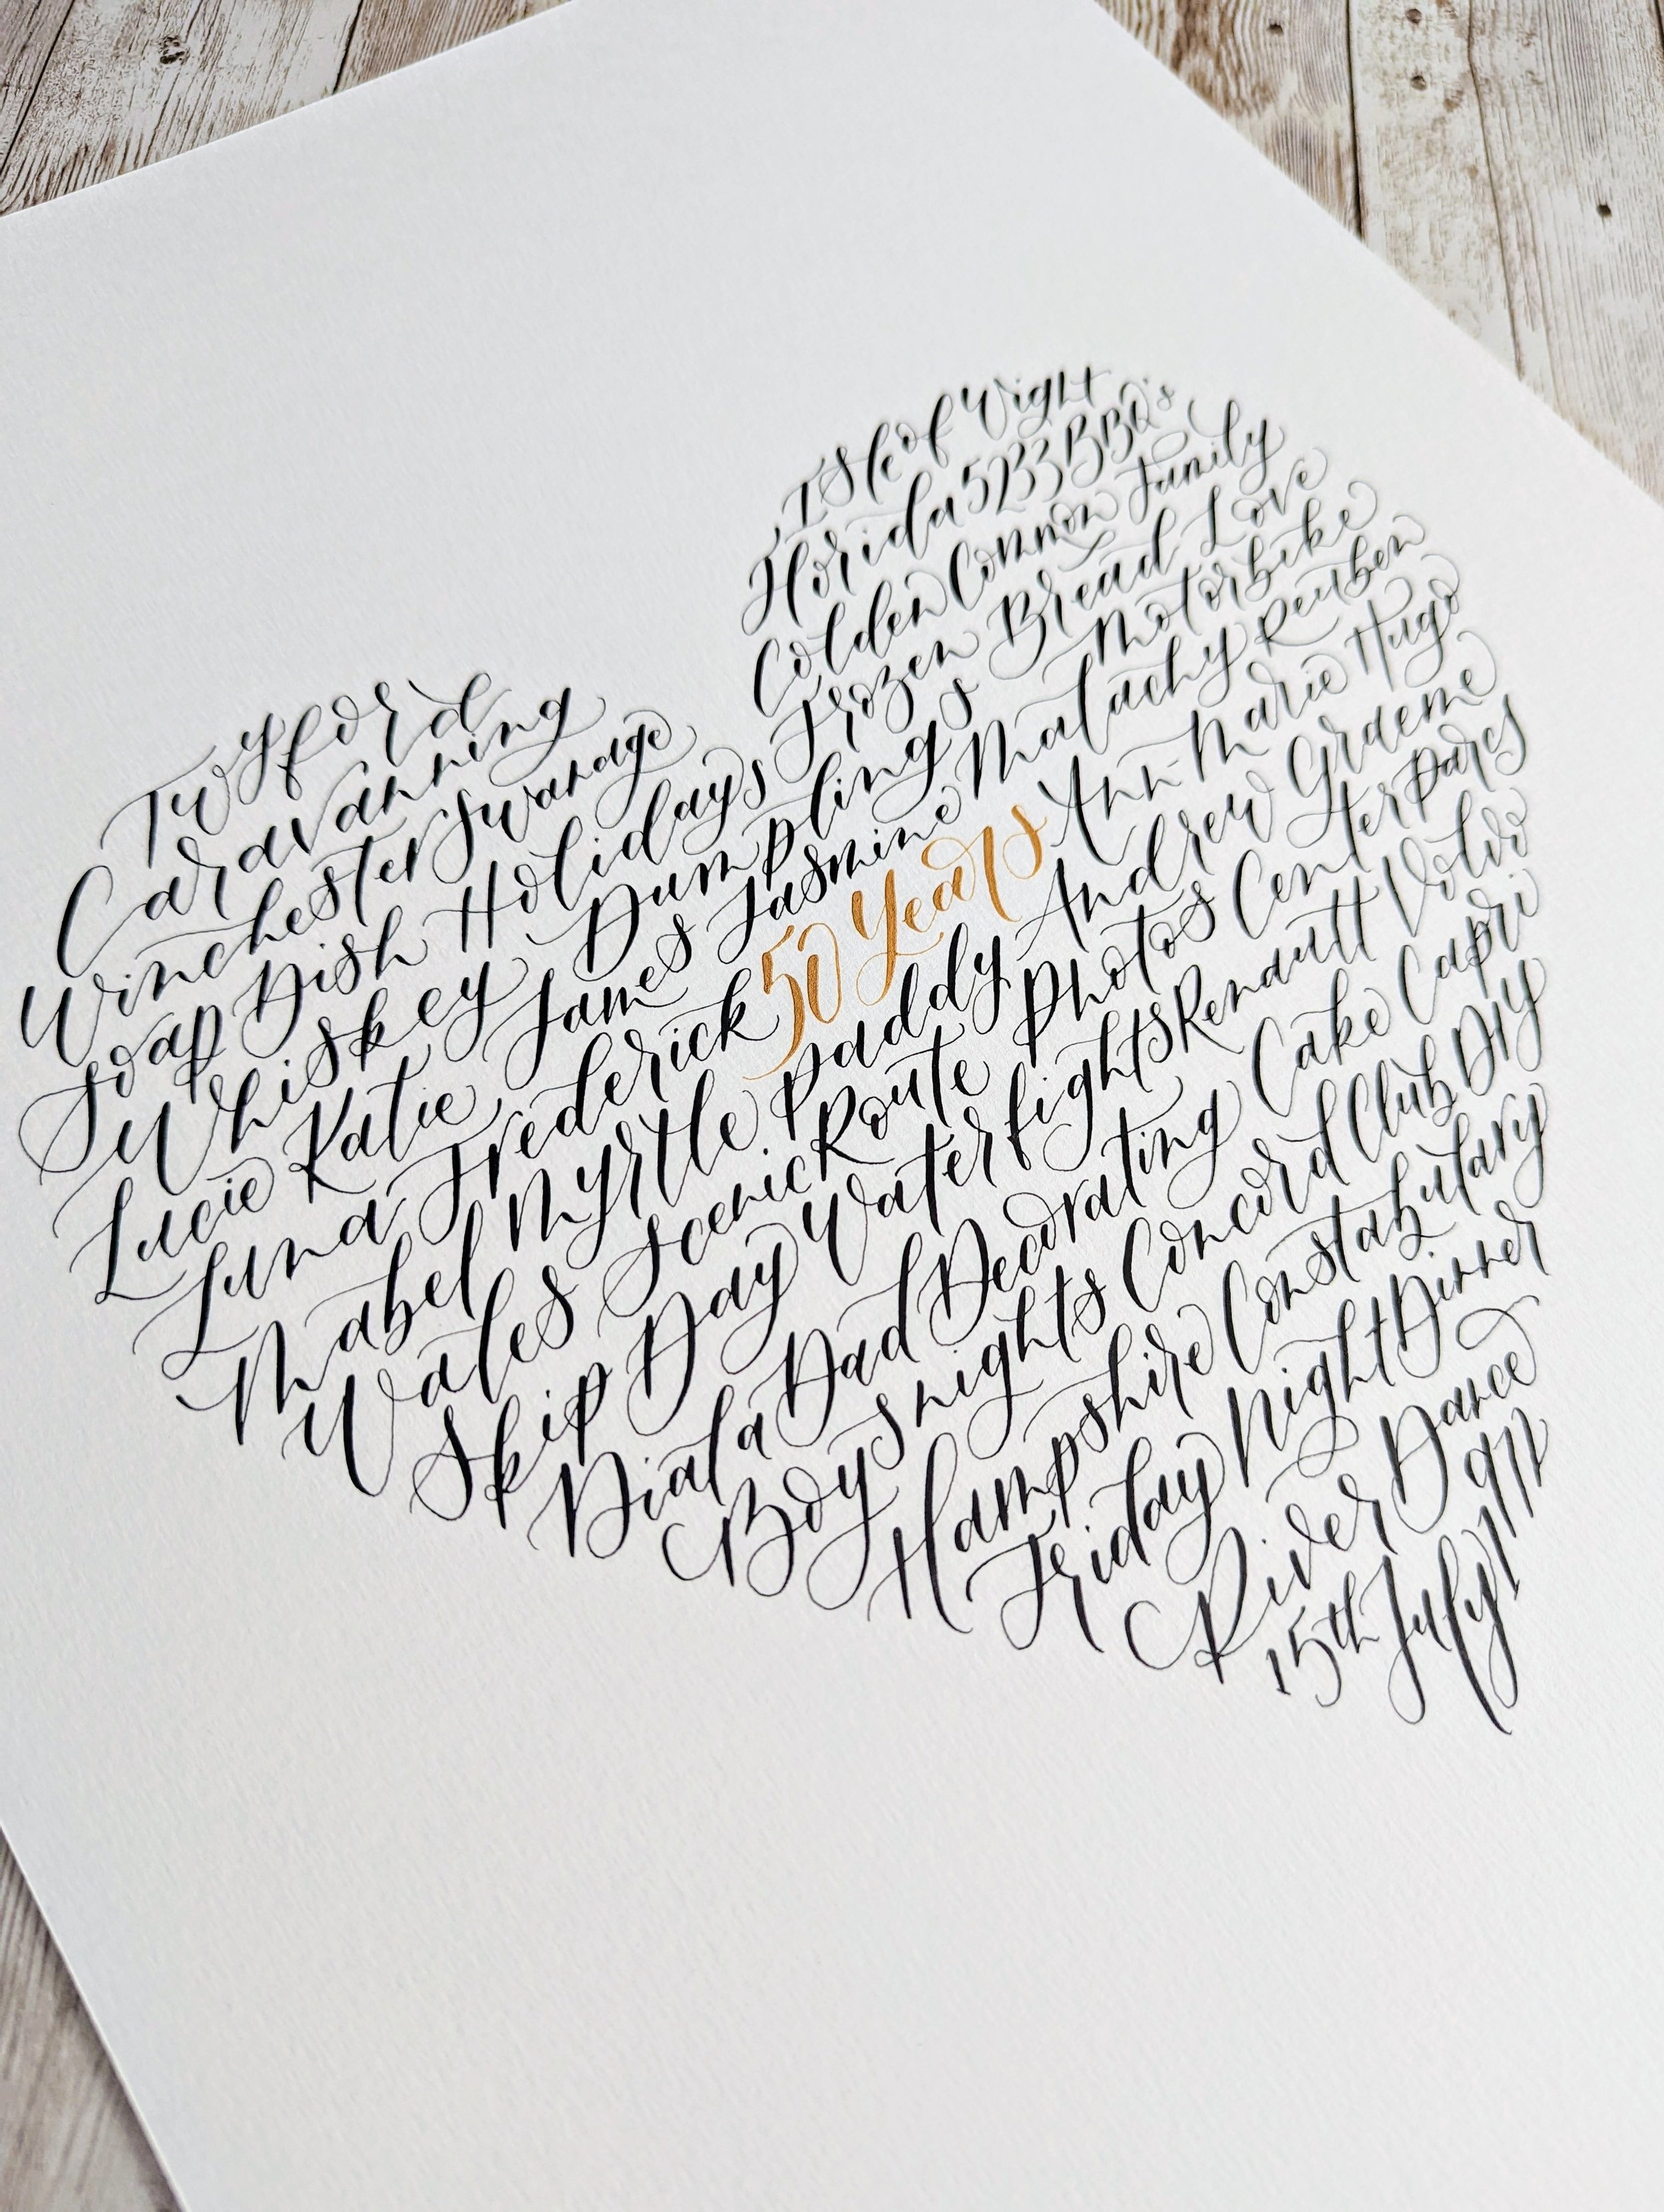 Twyford Isle of Wight
Caravanning Florida 5233 BBQ's
Winchester Swanage Colden Common Family
Soap Dish Holidays Frozen Bread Love
Whiskey Dumplings Motorbike
Lucie Katie James Jasmine Malachy Reuben
Luna Frederick 50 Years Ann-Marie Hugo
Mabel Myrtle Paddy Andrew Graeme
Wales Scenic Route Photos Center Parcs
Skip Day Waterfights Renault Volvo
Dial a Dad Decorating Cake Capri
Boys nights Concord Club DIY
Hampshire Constabulary
Friday Night Dinner
River Dance
15th July 1971